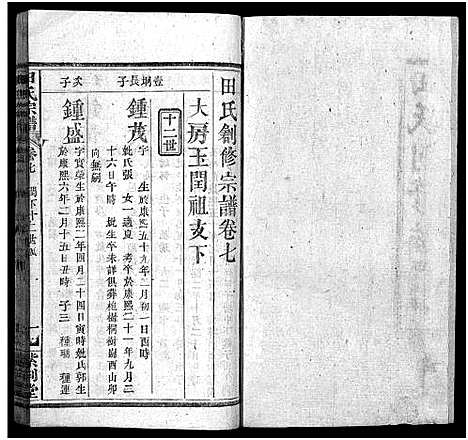 田氏創修宗譜卷七
大房玉閏祖支下
十二世
壺炯長子
鍾茂
字 生於康熙五十九年二月初一日酉時
妣氏張 女一適夏 考卒於康熙二十一年九月二
十六日午時 妣生卒未詳俱葬樵樹桐樹崗酉山卯
向無嗣
次子
鍾盛
字實榮生於康熙二年四月二十四日寅時妣氏郭生
於康熙六年二月十五日丑時 子三 種瑞 種連
田氏宗譜 卷七 閏下十二世
一 紫荊堂